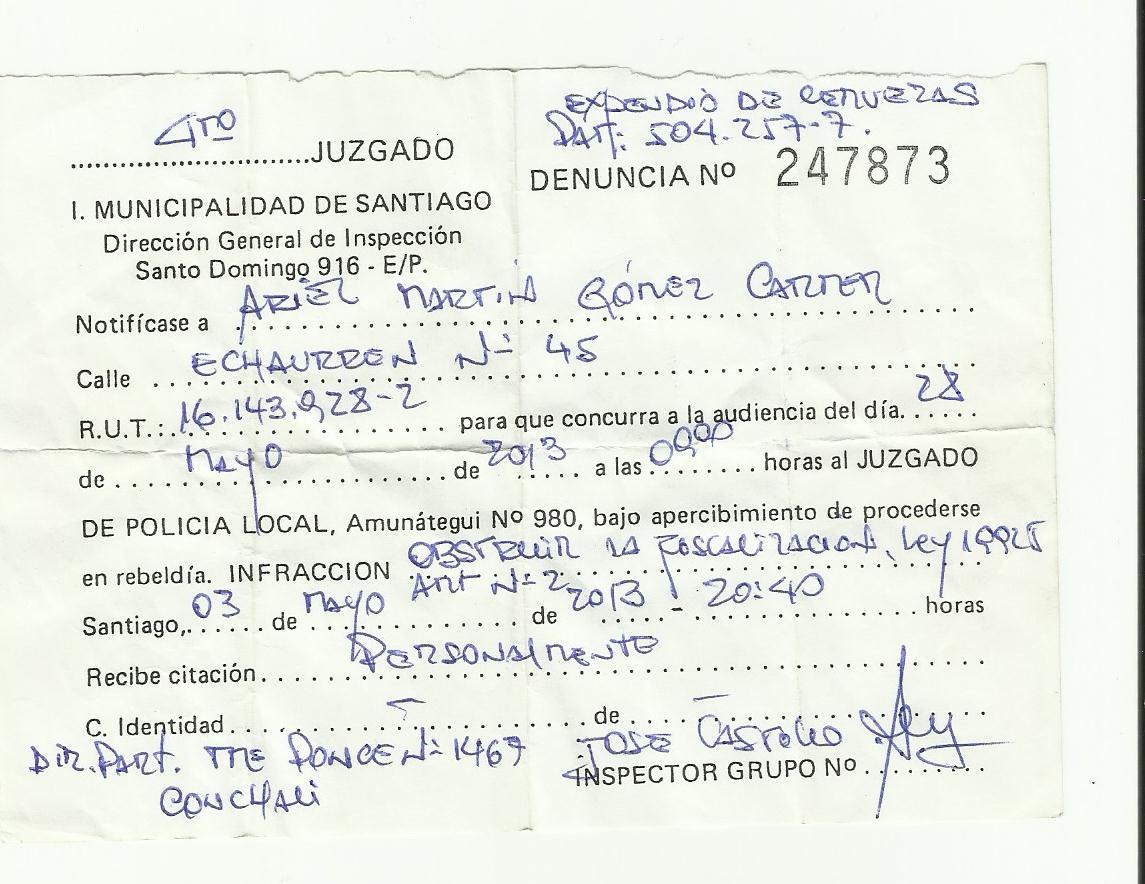 4TO
..............................JUZGADO
I. MUNICIPALIDAD DE SANTIAGO
Dirección General de Inspección
Santo Domingo 916 - E/P.
EXPENDIO DE CERVEZAS
PAT: 504.257-7.
DENUNCIA Nº 247873
Notifícase a ARIEL MARTIN GÓMEZ CARTER
Calle ECHAURREN Nº 45
R.U.T.: 16.143.928-2 para que concurra a la audiencia del día. 28
de MAYO de 2013 a las 09,00 horas al JUZGADO
DE POLICIA LOCAL, Amunátegui Nº 980, bajo apercibimiento de procederse
en rebeldía. INFRACCION OBSTRUIR LA FISCALIZACION, Ley 19925
ART Nº 2
Santiago, 03 de MAYO de 2013 - 20:40 horas
Recibe citación PERSONALMENTE
C. Identidad - de -
JOSE CASTILLO
INSPECTOR GRUPO Nº
DIR. PART. TTE PONCE Nº 1467
CONCHALI